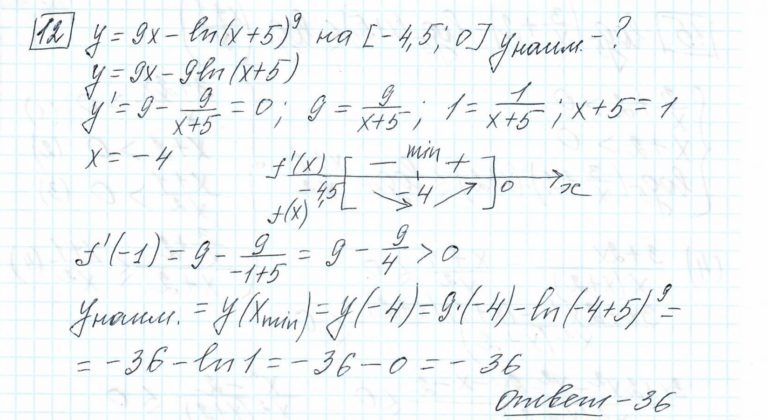 12 y = 9x - ln(x+5)⁹ на [-4,5; 0] yнаим. - ?
y = 9x - 9ln(x+5)
y' = 9 - 9/(x+5) = 0; 9 = 9/(x+5); 1 = 1/(x+5); x+5 = 1
x = -4
f'(x) [ - min + ]
-4,5 -4 0 x
f(x)
f'(-1) = 9 - 9/(-1+5) = 9 - 9/4 > 0
yнаим. = y(xmin) = y(-4) = 9·(-4) - ln(-4+5)⁹ =
= -36 - ln1 = -36 - 0 = -36
ответ -36